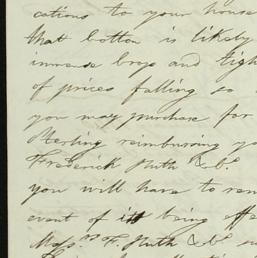 cations to your house
that cotton is likely
immense crop and tigh
of prices falling so
you may purchase for
Sterling reimbursing yo
Frederick Huth & Co.
you will have to rem
event of it being effe
Messrs. F. Huth & Co. su